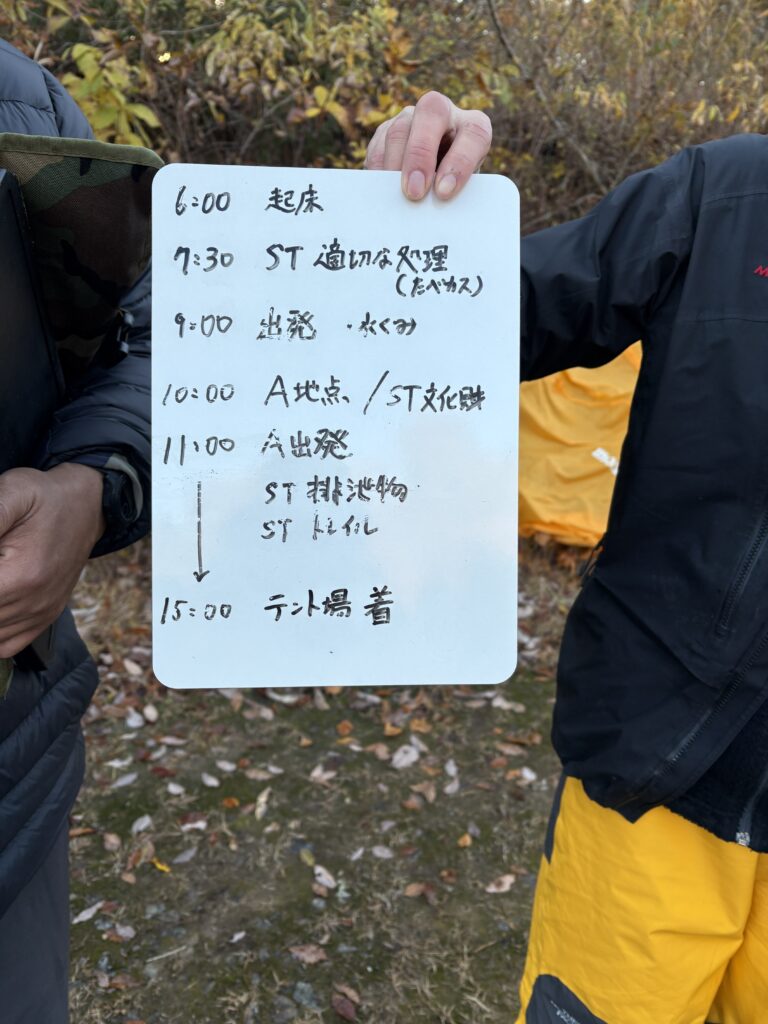 6:00 起床
7:30 ST 適切な処理
(たべカス)
9:00 出発 ・水くみ
10:00 A地点 / ST文化財
11:00 A出発
ST 排泄物
ST トレイル
15:00 テント場 着